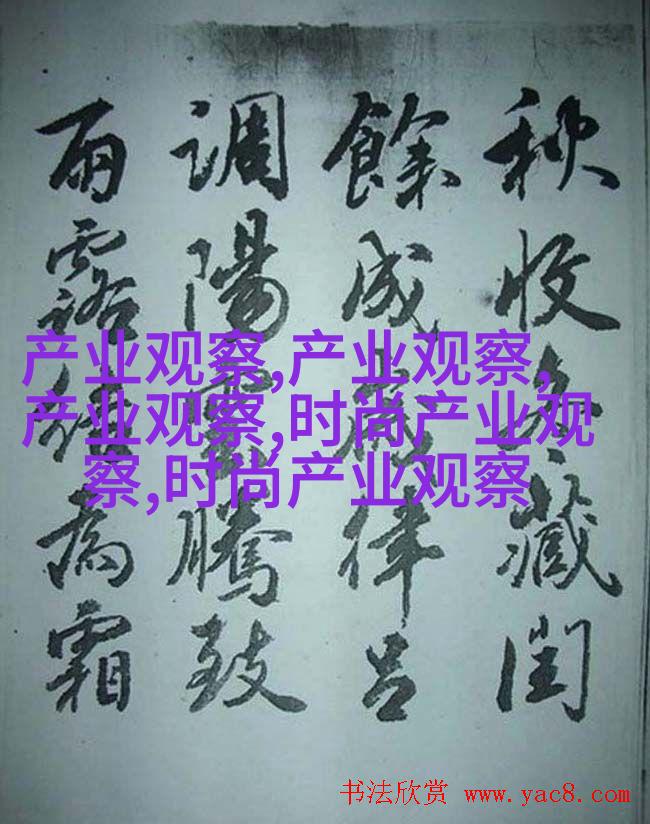 秋收冬藏閏
餘成歲律呂
調陽雲騰致
雨露結為霜
产业观察,产业观察,
产业观察,时尚产业观
察,时尚产业观察
书法欣赏 www.yac8.com